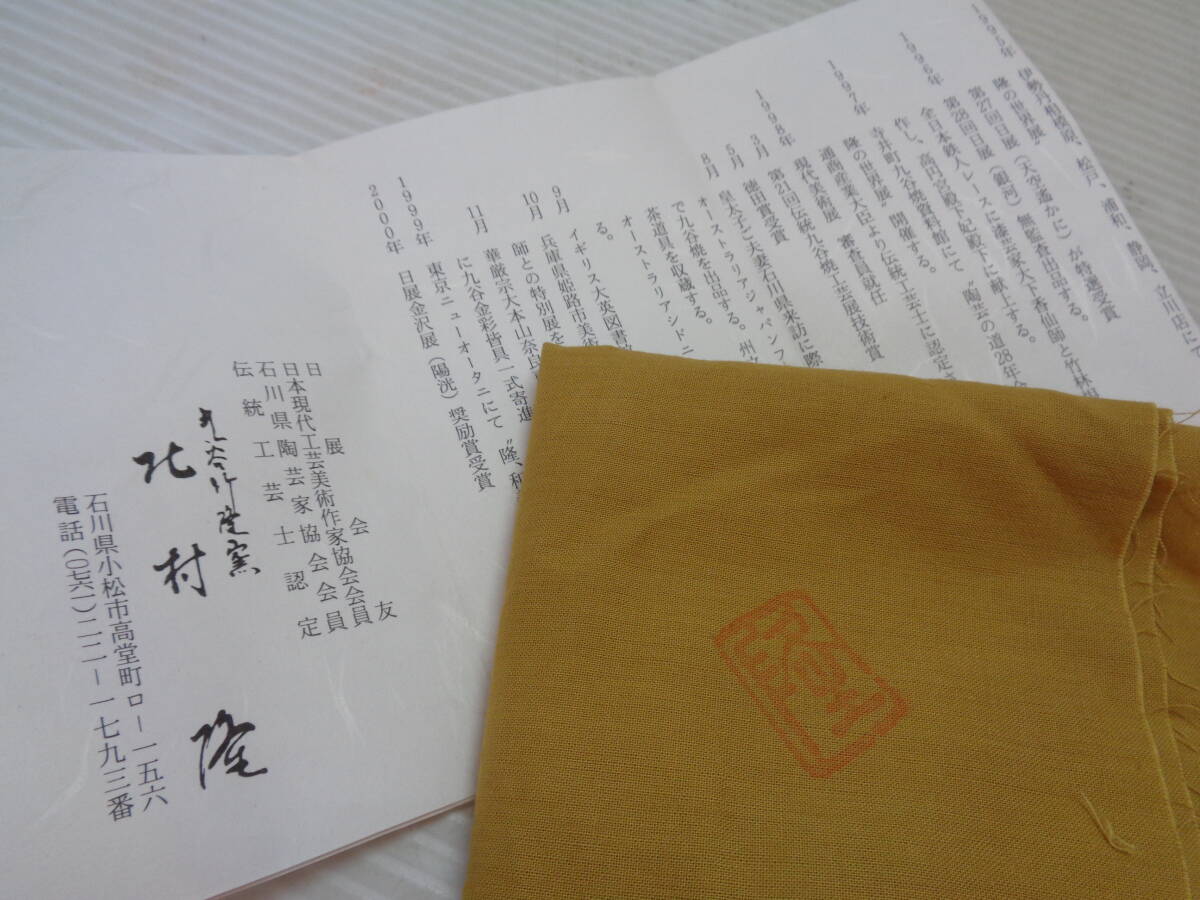 1995年 伊勢丹相模原、松戸、浦和、静岡、立川店に
隆の世界〟
第27回日展(天空遙かに)が特選受賞
1996年 第28回日展(銀河)無監査出品する。
全日本鉄人レースに漆芸家大下香仙師と竹林
作し、高円宮殿下妃殿下に献上する。
1997年 寺井町九谷焼資料館にて〝陶芸の道28年
隆の世界展〟開催する。
通商産業大臣より伝統工芸士に認定
現代美術展 審査員就任
1998年 第21回伝統九谷焼工芸展技術賞
3月 徳田賞受賞
5月 皇太子ご夫妻石川県来訪に際
8月 オーストラリアジャパンフ
で九谷焼を出品する。州
オーストラリアシドニ
茶道具を収蔵する。
9月 イギリス大英図書
る。
10月 兵庫県姫路市美術
師との特別展を
11月 華厳宗大本山奈良
に九谷金彩皆具一式寄進
1999年 東京ニューオータニにて〝隆、和
2000年 日展金沢展(陽洸)奨励賞受賞
日展会友
日本現代工芸美術作家協会会員
石川県陶芸家協会会員
伝統工芸士認定
九谷作隆窯
北村 隆
石川県小松市高堂町ロ-一五六
電話(〇七六一)二二-一七九三番